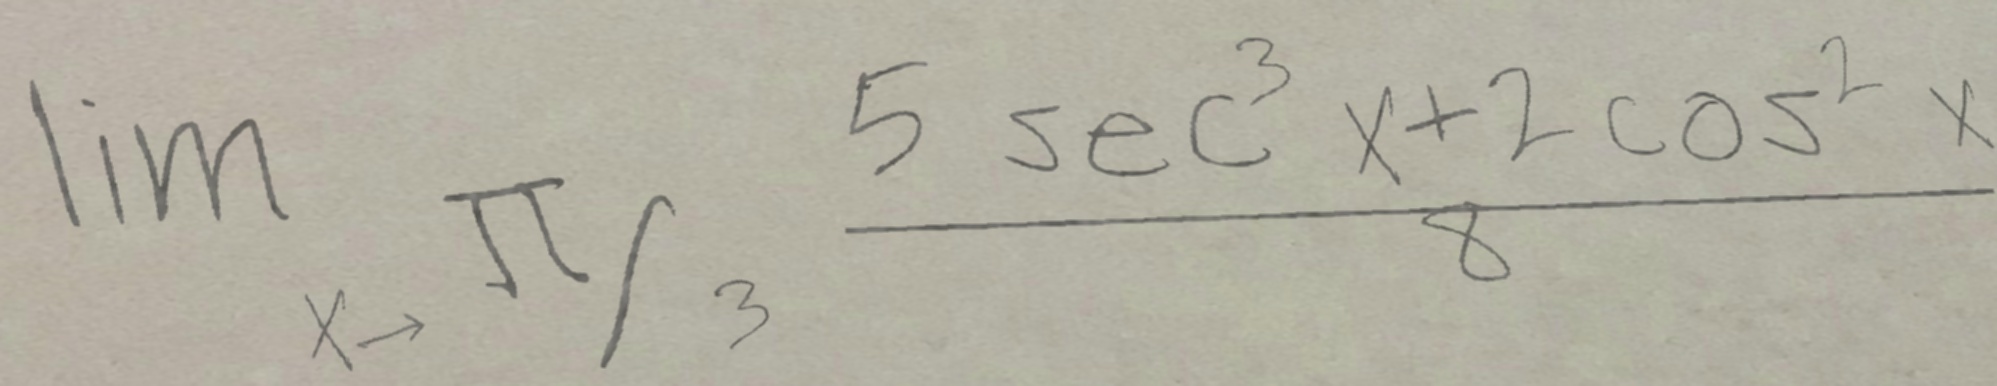 lim x→ π/3 (5 sec³ x + 2 cos² x) / 8